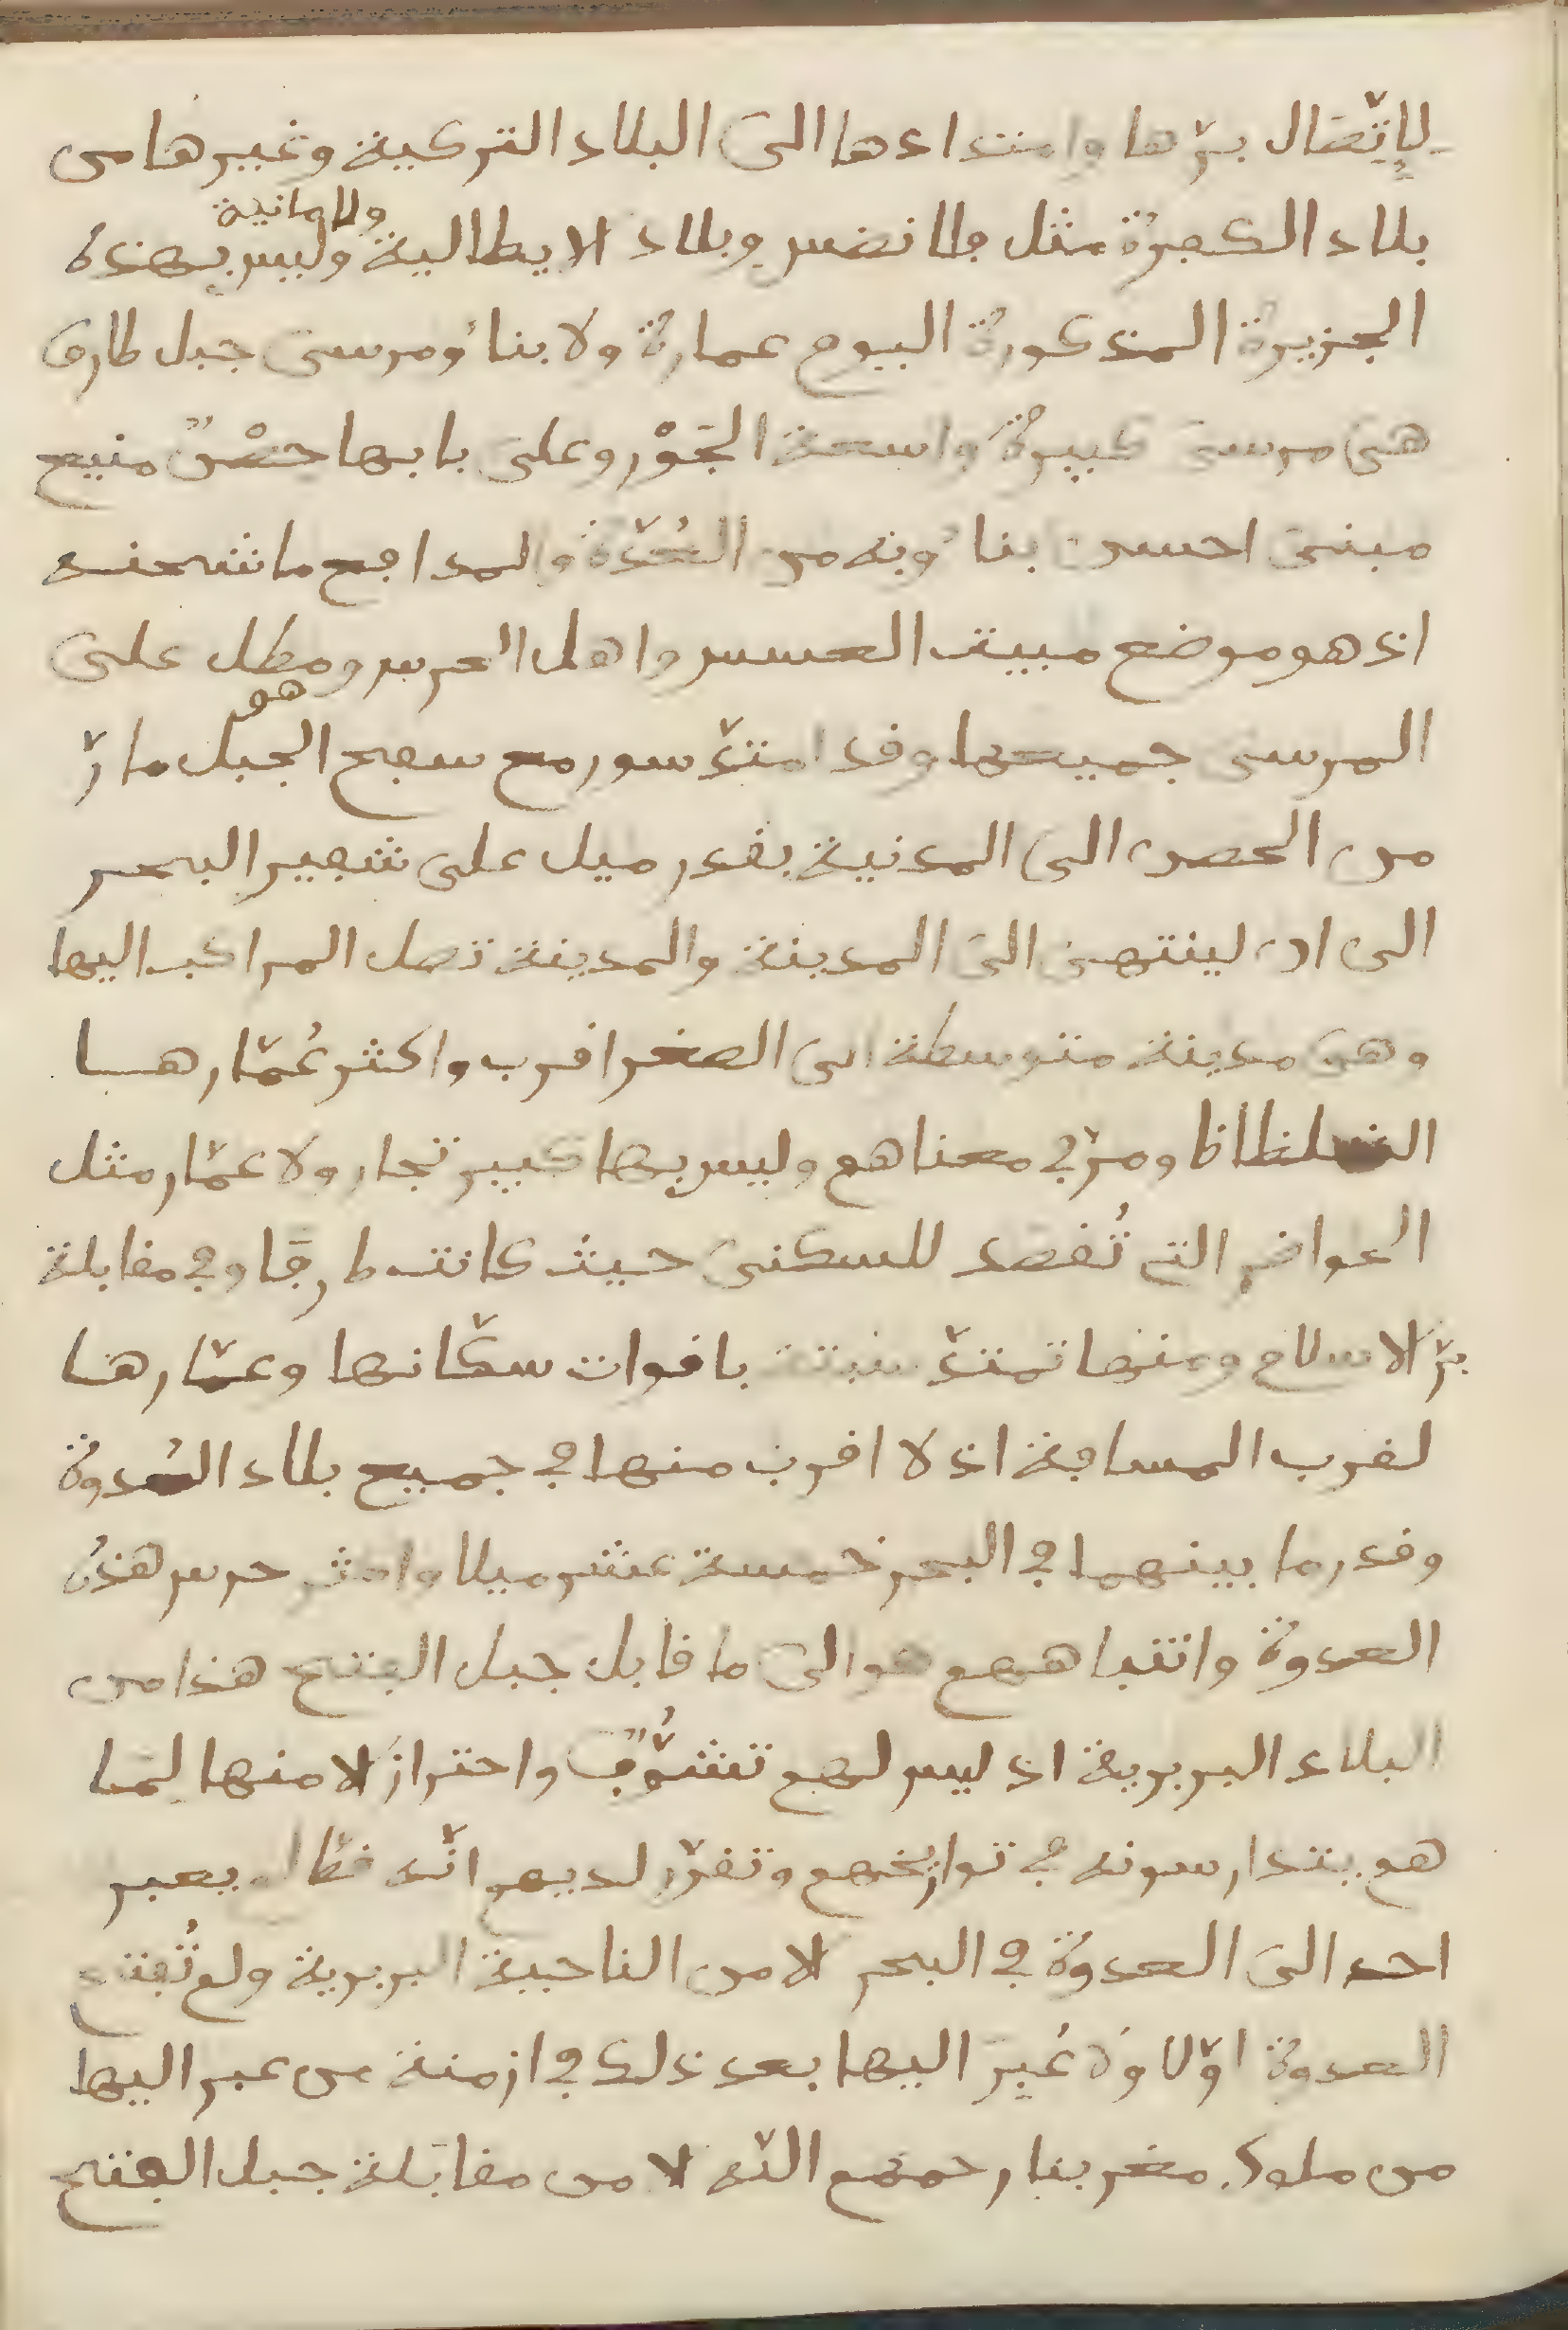 لإتّصال برّها وامتدادها الى البلاد التركية وغيرها من
بلاد الكفرة مثل فلانضس وبلاد الايطالية ولالمانية وليس بهذه
الجزيرة المذكورة اليوم عمارة ولا بناءٌ ومرسى جبل طارق
هي مرسى كبيرة واسعة الجَوْر وعلى بابها حصْن منيع
مبنى احسن بناءٍ وبه من العُدّة والمدافع ما شحنه
اذ هو موضع مبيت العسس واهل الحرس ومطل على
المرسى جميعها وقد امتدّ سور مع سفح الجبل هو مارّ
من الحصن الى المدنية بقدر ميل على شفير البحر
الى ان لينتهى الى المدينة والمدينة تصل المراكب اليها
وهى مدينة متوسطة الى الصغر اقرب واكثر عُمّارها
الصلظاظ ومن في معناهم وليس بها كبير تجار ولا عمّار مثل
الحواضر التي تُقصد للسكنى حيث كانت طرفا وفي مقابلة
برّ الاسلام ومنها تمتدّ سبتة باقوات سكّانها وعمّارها
لقرب المسافة اذ لا اقرب منها في جميع بلاد العُدوة
وقدر ما بينهما في البحر خمسة عشر ميلا واكثر حرس هذه
العدوة وانتباههم هو الى ما قابل جبل الفتح هذا من
البلاد البربرية اذ ليس لهم تشوُّفٌ واحتراز الا منها لِمَا
هم يتدارسونه في تواريخهم وتقرّر لديهم انّه قطّ لم يعبر
احد الى العدوة في البحر الا من الناحية البربرية ولم تُفتتح
العدوة اوّلا ولا عُبِر اليها بعد ذلك في ازمنة من عبر اليها
من ملوك مغربنا رحمهم اللّه الا من مقابلة جبل الفتح